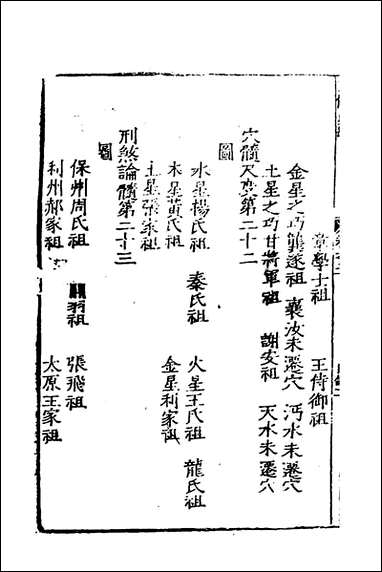 章學士祖 王侍御祖
金星之巧龔遂祖 襄汝未遷穴 沔水未遷穴
土星之巧甘將軍祖 謝安祖 天水未遷穴
穴髓尺度第二十二
圖
水星楊氏祖 秦氏祖 火星王氏祖 龍氏祖
木星黄氏祖 金星利家祖
土星張家祖
刑煞論髓第二十三
圖
保州周氏祖 翁祖 張飛祖
利州郝家祖 太原王家祖